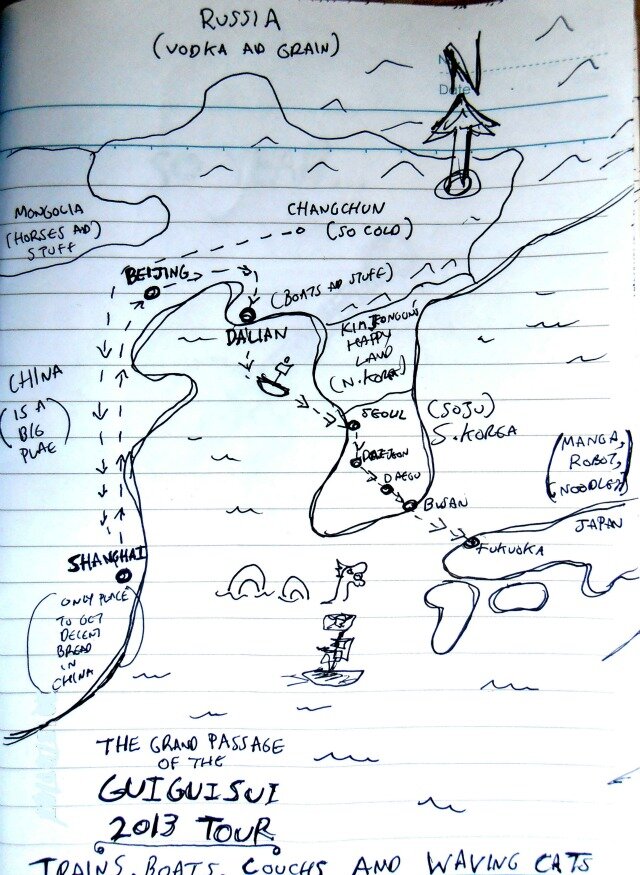 RUSSIA
(VODKA AD GRAIN)
N
Date
MONGOLIA
(HORSES AD)
STUFF
CHANGCHUN
(SO COLD)
BEIJING
(BOATS AD STUFF)
DALIAN
KIM JEONGUN'S
HAPPY
LAND
(N. KOREA)
CHINA
(IS A
BIG
PLAE)
SEOUL
(SOJU)
S. KOREA
DAEJEON
DAEGU
BUSAN
(MANGA,
ROBOT,
NOODLEZ)
JAPAN
FUKUOKA
SHANGHAI
(ONLY PLACE
TO GET
DECENT
BREAD
IN
CHINA)
THE GRAND PASSAGE
OF THE
GUIGUISUI
2013 TOUR
TRAINS, BOATS, COUCHS AND WAVING CATS